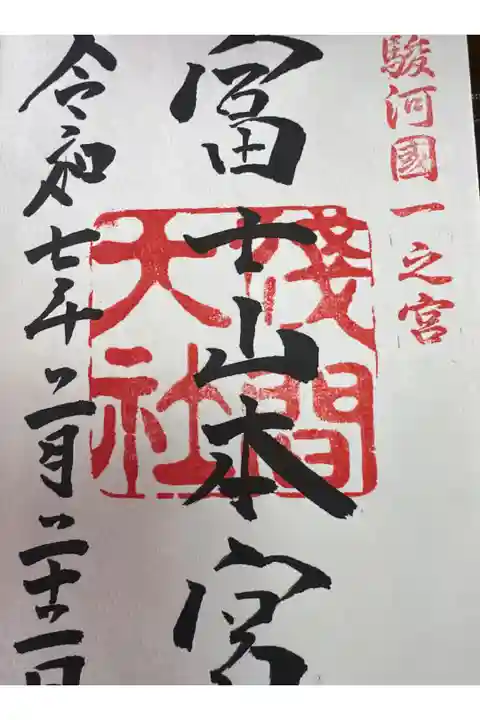 駿河國一之宮
富士山本宮
淺間大社
令和七年二月二十二日